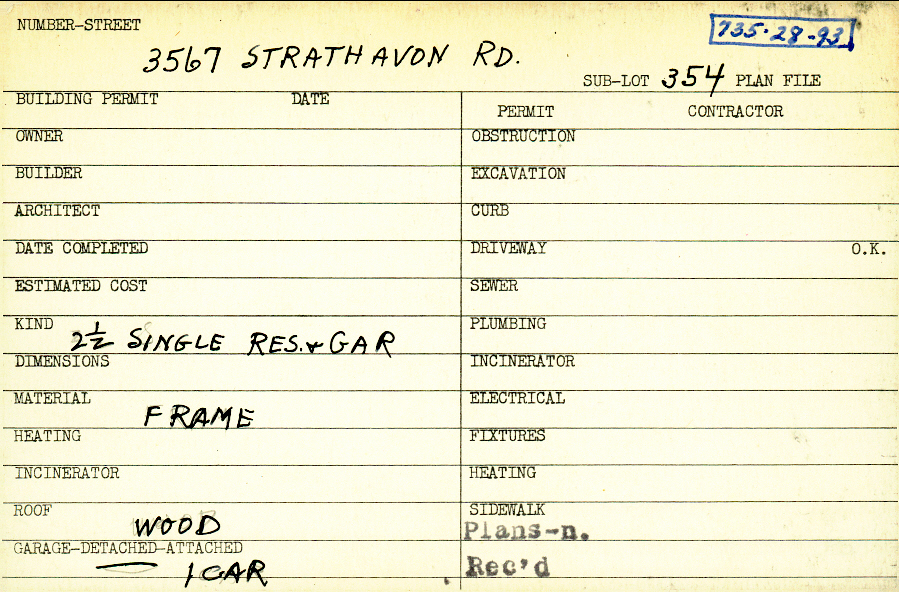 NUMBER-STREET
735-28-93
3567 STRATHAVON RD.
SUB-LOT 354 PLAN FILE
BUILDING PERMIT DATE
PERMIT CONTRACTOR
OWNER
OBSTRUCTION
BUILDER
EXCAVATION
ARCHITECT
CURB
DATE COMPLETED
DRIVEWAY O.K.
ESTIMATED COST
SEWER
KIND 2½ SINGLE RES. & GAR
PLUMBING
DIMENSIONS
INCINERATOR
MATERIAL FRAME
ELECTRICAL
HEATING
FIXTURES
INCINERATOR
HEATING
ROOF WOOD
SIDEWALK
Plans-n.
GARAGE-DETACHED-ATTACHED
1 CAR
Rec'd